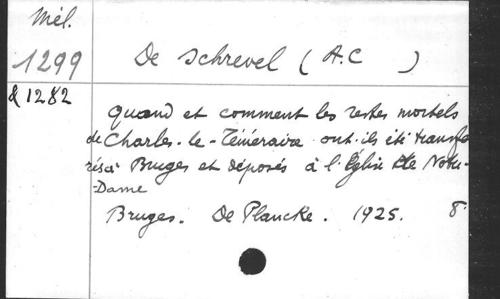 Mél.
1299
& 1282
De Schrevel (A.C )
Quand et comment les restes mortels
de Charles-le-Téméraire ont-ils été transfé
rés à Bruges et déposés à l'Église de Notre-
-Dame
Bruges. De Plancke. 1925. 8°